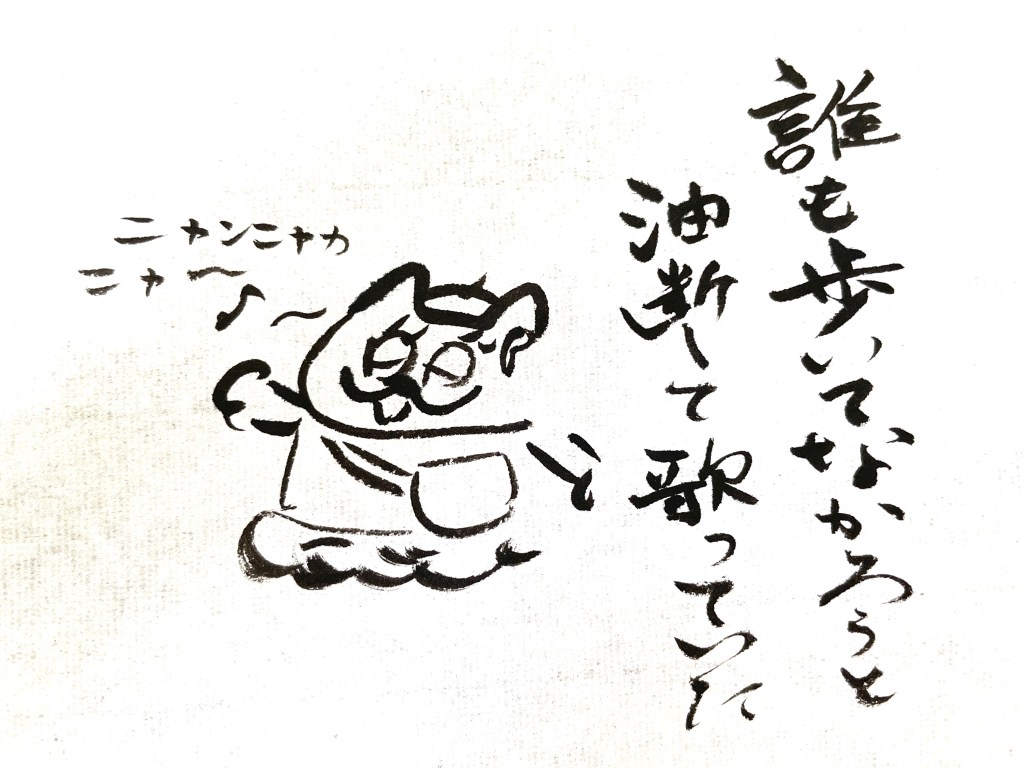 誰も歩いてなかろうと
油断して歌っていた
ニャンニャカ
ニャ〜♪〜